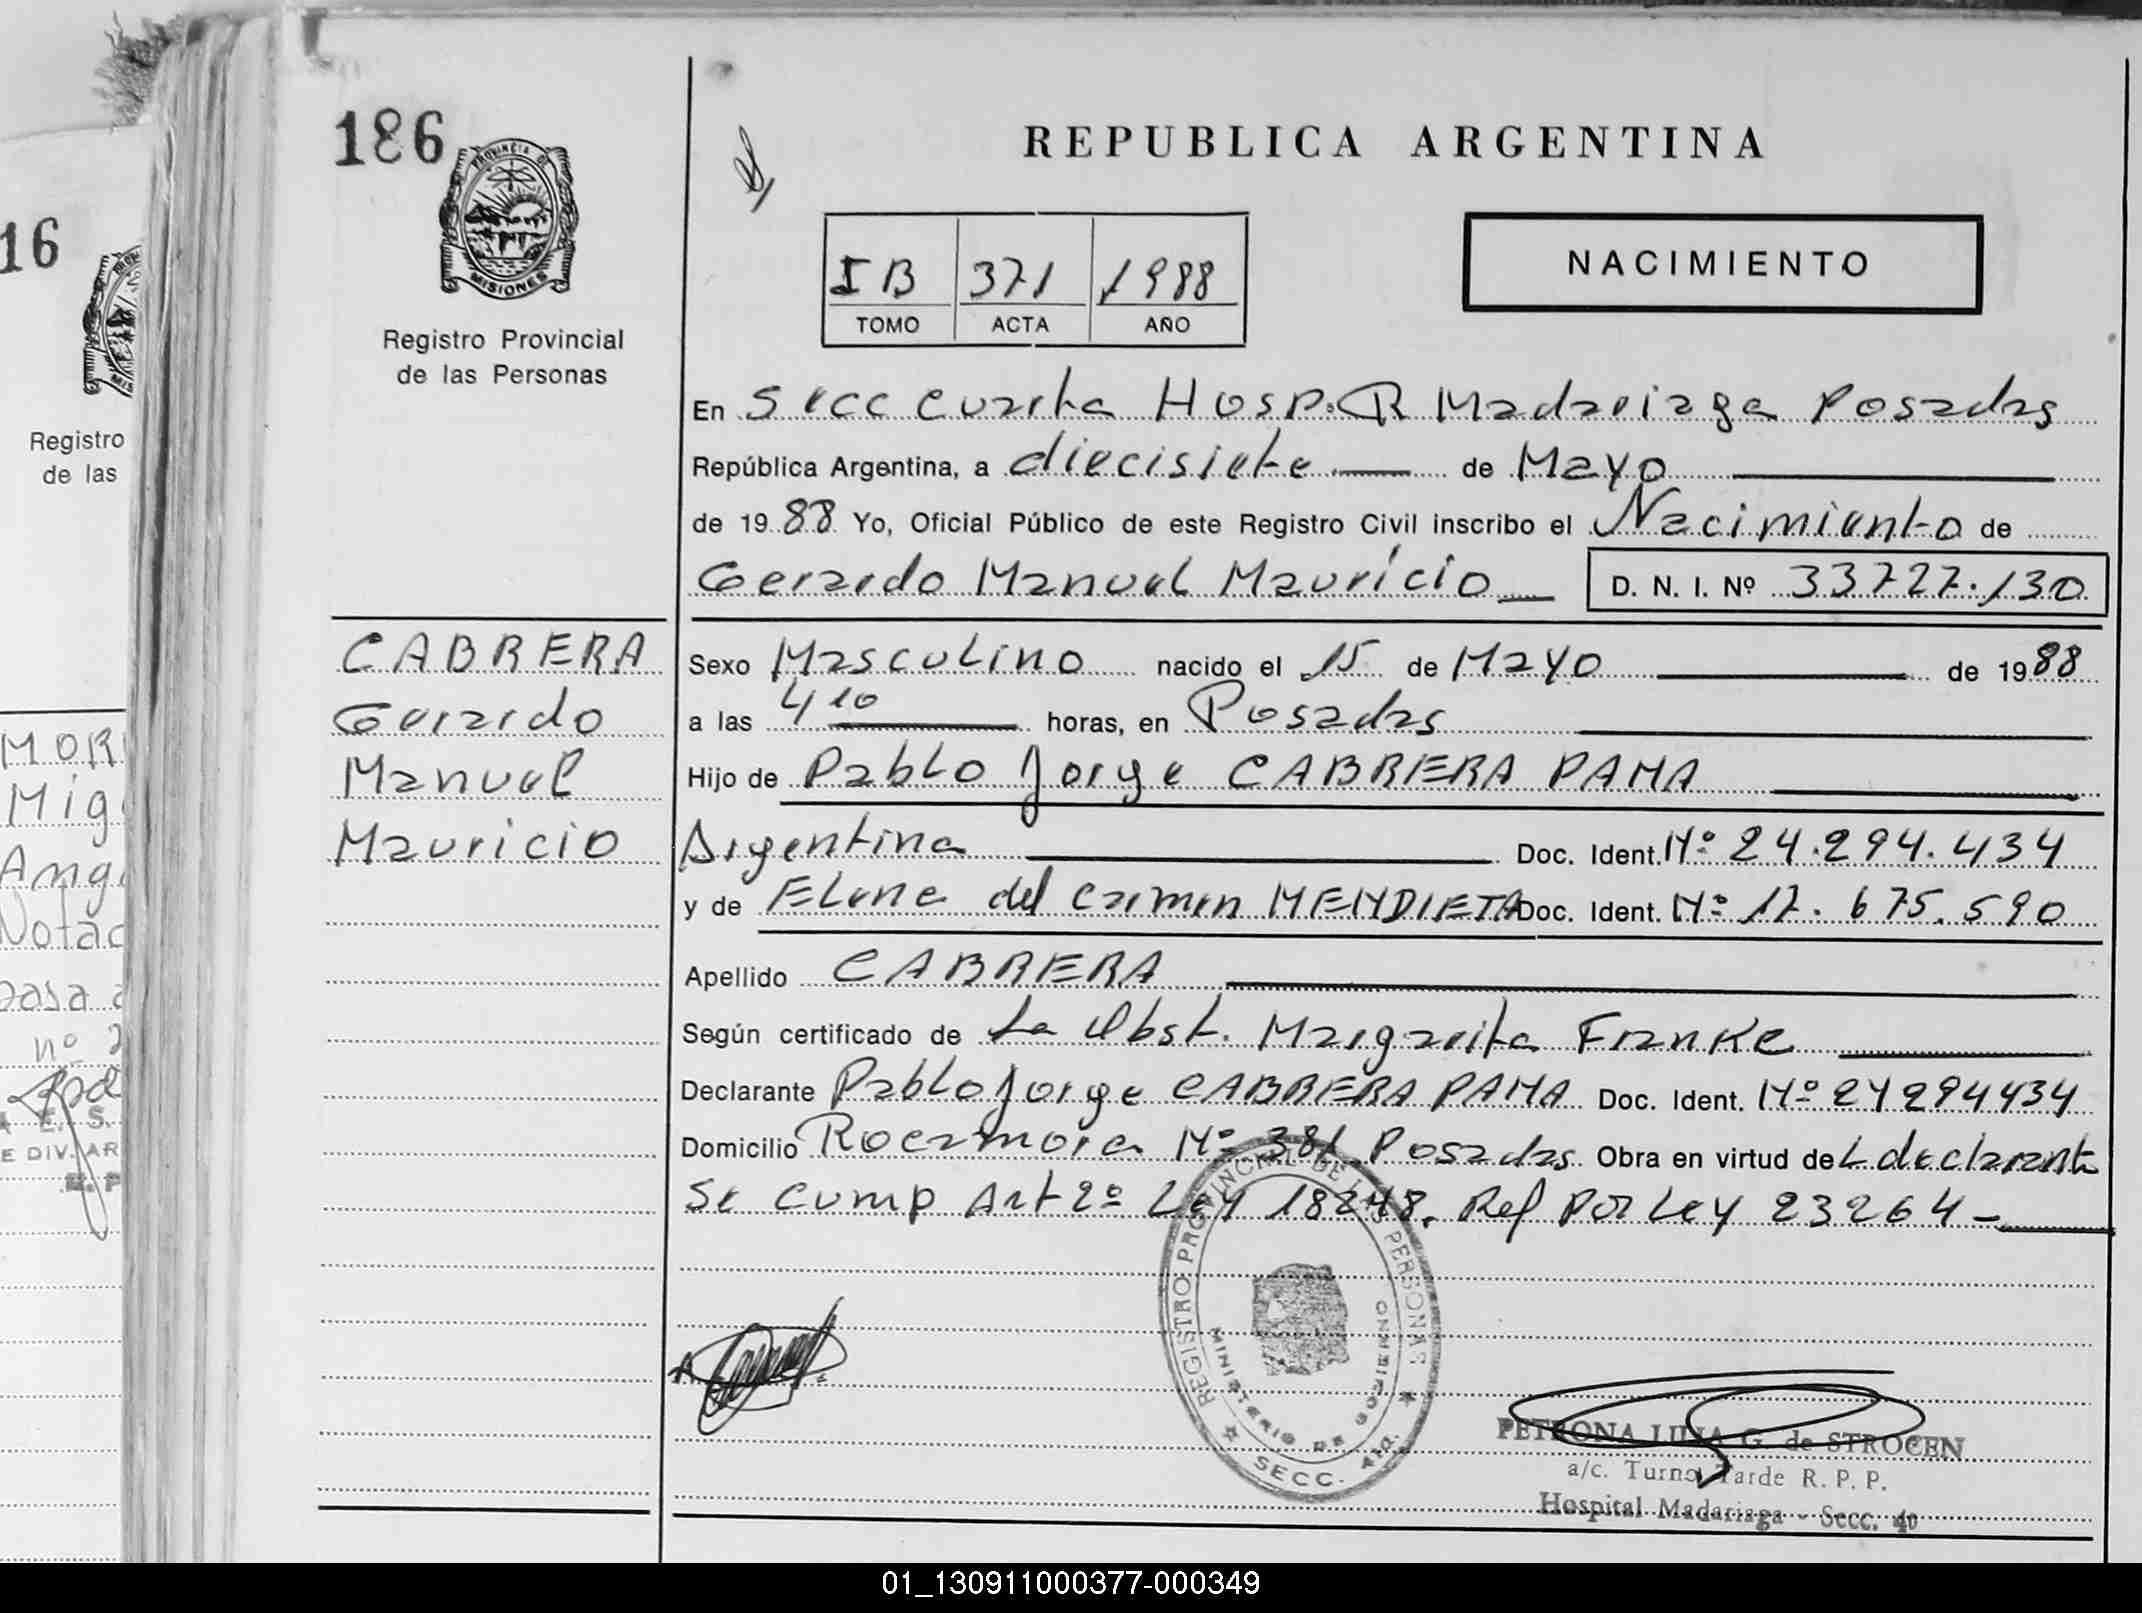 186
PROVINCIA DE
MISIONES
Registro Provincial
de las Personas
REPUBLICA ARGENTINA
NACIMIENTO
I B 371 1988
TOMO ACTA AÑO
En Secc cuarta Hosp. R Madariaga Posadas
República Argentina, a diecisiete de Mayo
de 1988 Yo, Oficial Público de este Registro Civil inscribo el Nacimiento de
Gerardo Manuel Mauricio D. N. I. Nº 33727.130
CABRERA
Gerardo
Manuel
Mauricio
Sexo Masculino nacido el 15 de Mayo de 1988
a las 4 10 horas, en Posadas
Hijo de Pablo Jorge CABRERA PAMA
Argentina Doc. Ident. Nº 24.294.434
y de Elena del Carmen MENDIETA Doc. Ident. Nº 17.675.590
Apellido CABRERA
Según certificado de La Obst. Margarita Franke
Declarante Pablo Jorge CABRERA PAMA Doc. Ident. Nº 24294434
Domicilio Rocamora Nº 381 Posadas Obra en virtud del declarante
Se cump Art 2º Ley 18248. Ref Por Ley 23264-
REGISTRO PROVINCIAL DE LAS PERSONAS
MINISTERIO DE GOBIERNO
SECC. 4TO.
PETRONA LILIA G. de STROCEN
a/c. Turno Tarde R. P. P.
Hospital Madariaga - Secc. 4º
16
Registro
de las
MOR
Mig
Ang
Notac
nº 2
E. S.
E DIV. AR
01_130911000377-000349